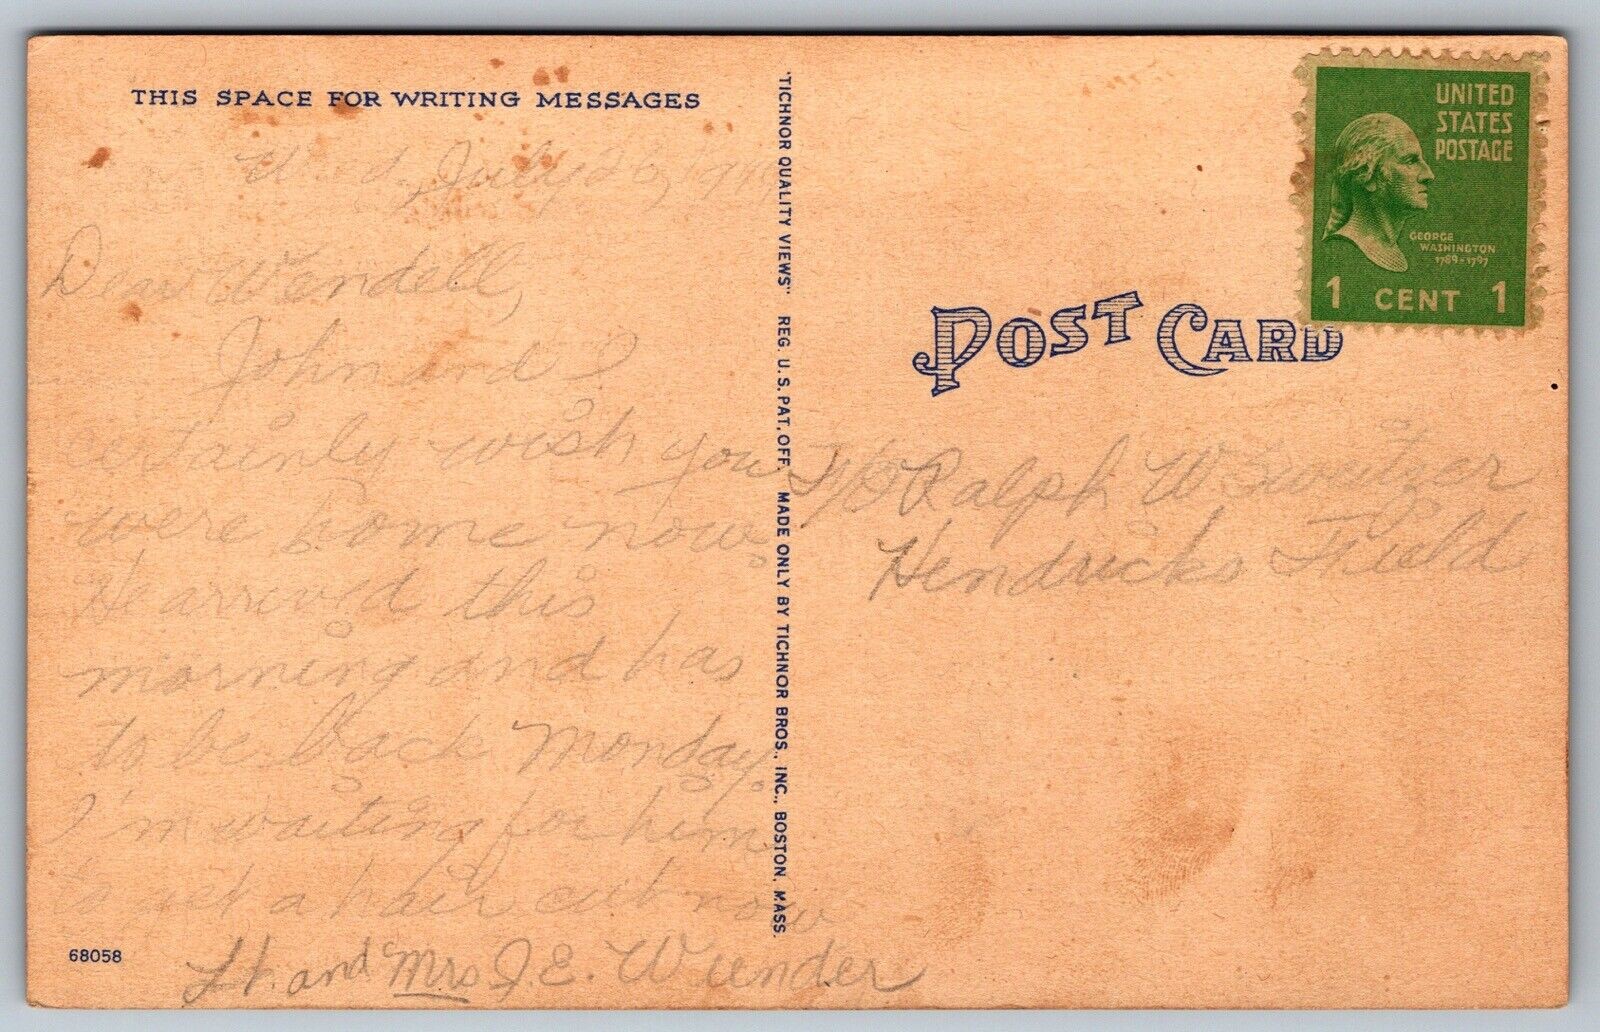 THIS SPACE FOR WRITING MESSAGES
July 26, 19
Dear Wendell,
John and I
certainly wish you
were home now.
He arrived this
morning and has
to be back Monday.
I'm waiting for him
to get a hair cut now
Lt. and Mrs J. E. Wunder
68058
"TICHNOR QUALITY VIEWS" REG. U.S. PAT. OFF. MADE ONLY BY TICHNOR BROS., INC., BOSTON, MASS.
UNITED
STATES
POSTAGE
GEORGE
WASHINGTON
1789-1797
1 CENT 1
POST CARD
Ralph W Switzer
Hendricks Field